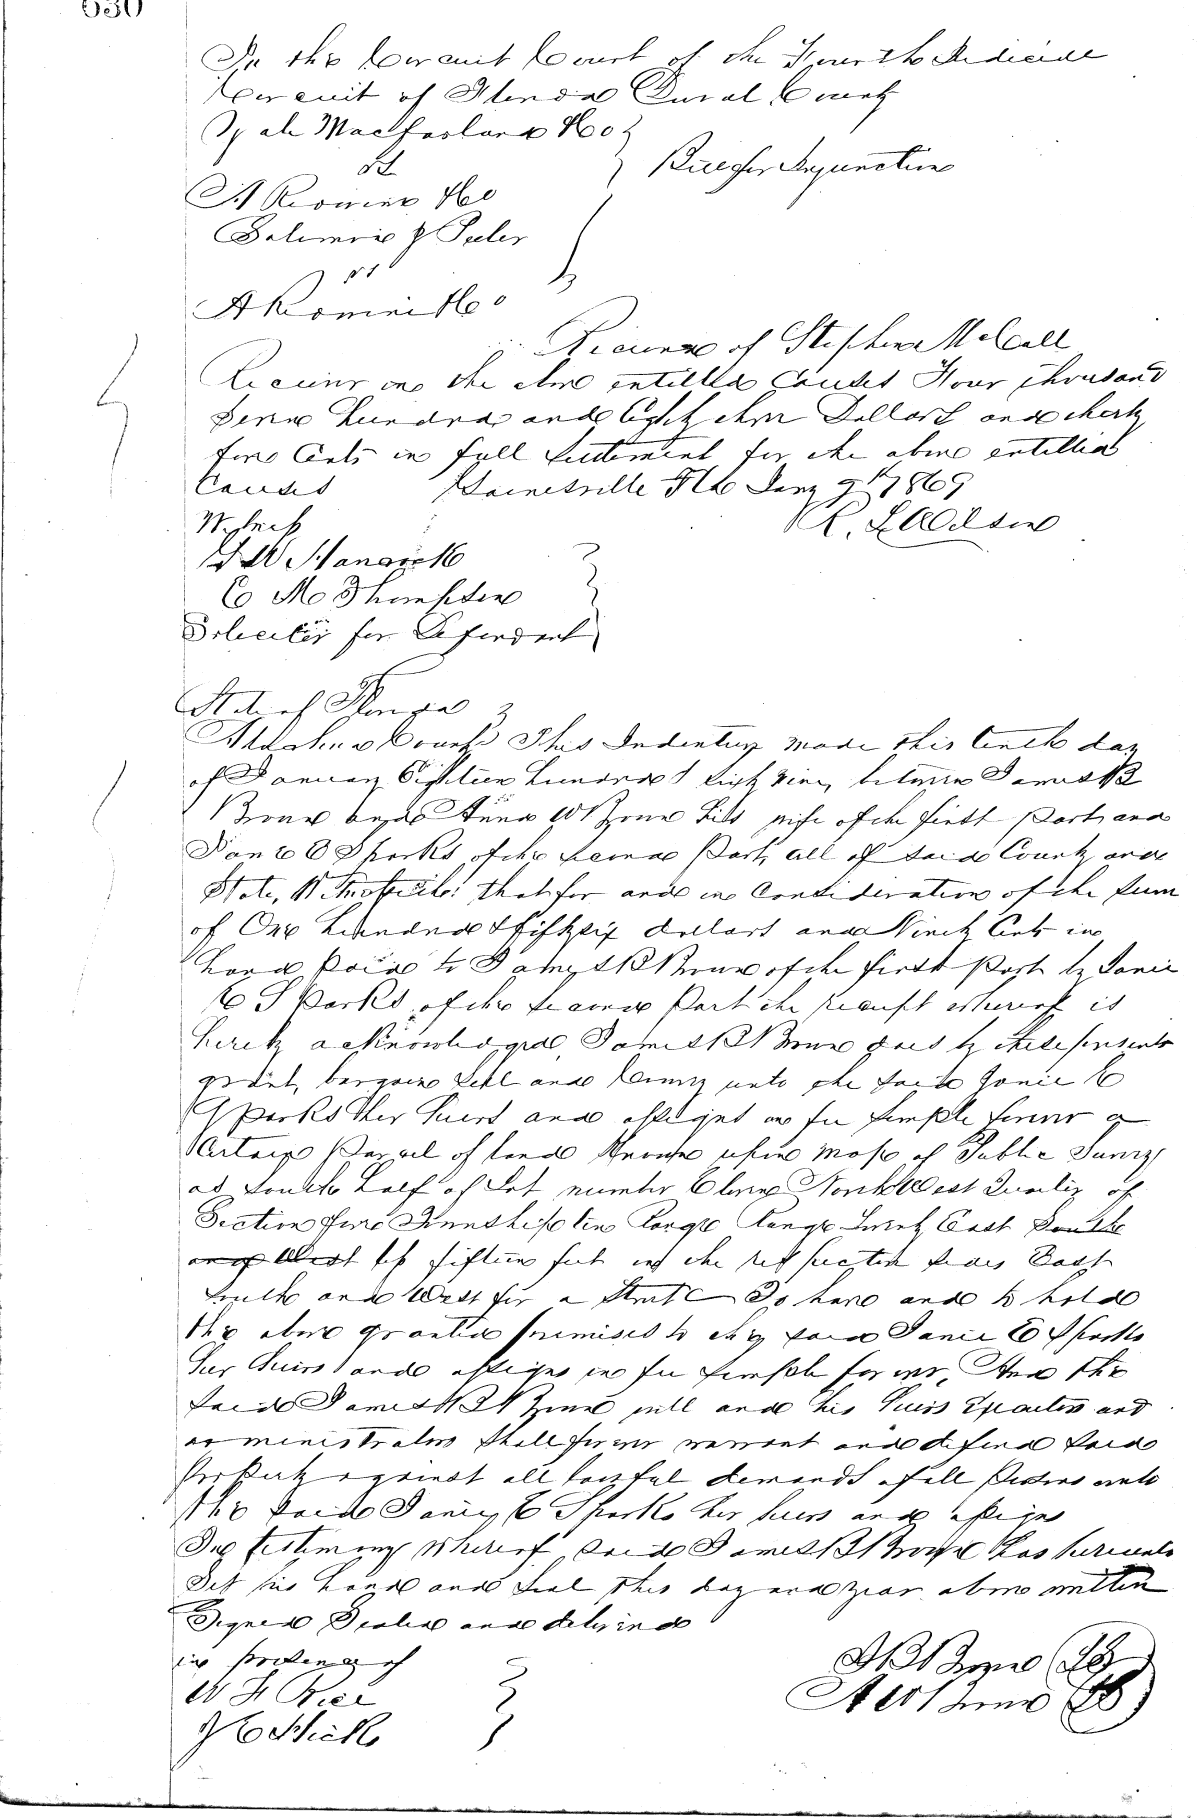 630
In the Circuit Court of the Fourth Judicial
Circuit of Florida Duval County
Macfarland & Co
vs
Bill for Injunction
A Romine & Co
vs
A Romini & Co
Received of Stephen McCall
Receiver in the above entitled Causes Four thousand
Seven hundred and Eighty three Dollars and thirty
five Cents in full Settlement for the above entitled
Causes Gainesville Fla Jany 9th 1869
Witness
C M Thompson
Soliciters for Defendant
State of Florida
Alachua County This Indenture made this tenth day
of January Eighteen hundred & Sixty nine between James B
Brown and Anna W Brown his wife of the first part and
Janie C Sparks of the second Part, all of said County and
State, Witnesseth: that for and in Consideration of the sum
of One hundred & fifty six dollars and Ninety Cents in
hand paid to James B Brown of the first Part by Janie
C Sparks of the second Part the receipt whereof is
hereby acknowledged James B Brown does by these presents
grant, bargain sell and Convey unto the said Janie C
Sparks her heirs and assigns in fee simple forever a
Certain Parcel of land Known upon Map of Public Survey
as South half of Lot number Eleven North West Quarter of
Section five Township ten Range Range Twenty East South
and West of fifteen feet in the respective sides East
South and West for a Street To have and to hold
the above granted premises to the said Janie C Sparks
her heirs and assigns in fee simple forever, And the
said James B Brown will and his heirs Executors and
administrators Shall forever warrant and defend said
Property against all lawful demands of all Persons unto
the said Janie C Sparks her heirs and assigns
In testimony whereof said James B Brown has hereunto
Set his hand and seal this day and year above written
Signed Sealed and delivered
in presence of
J B Brown (LS)
A W Brown (LS)